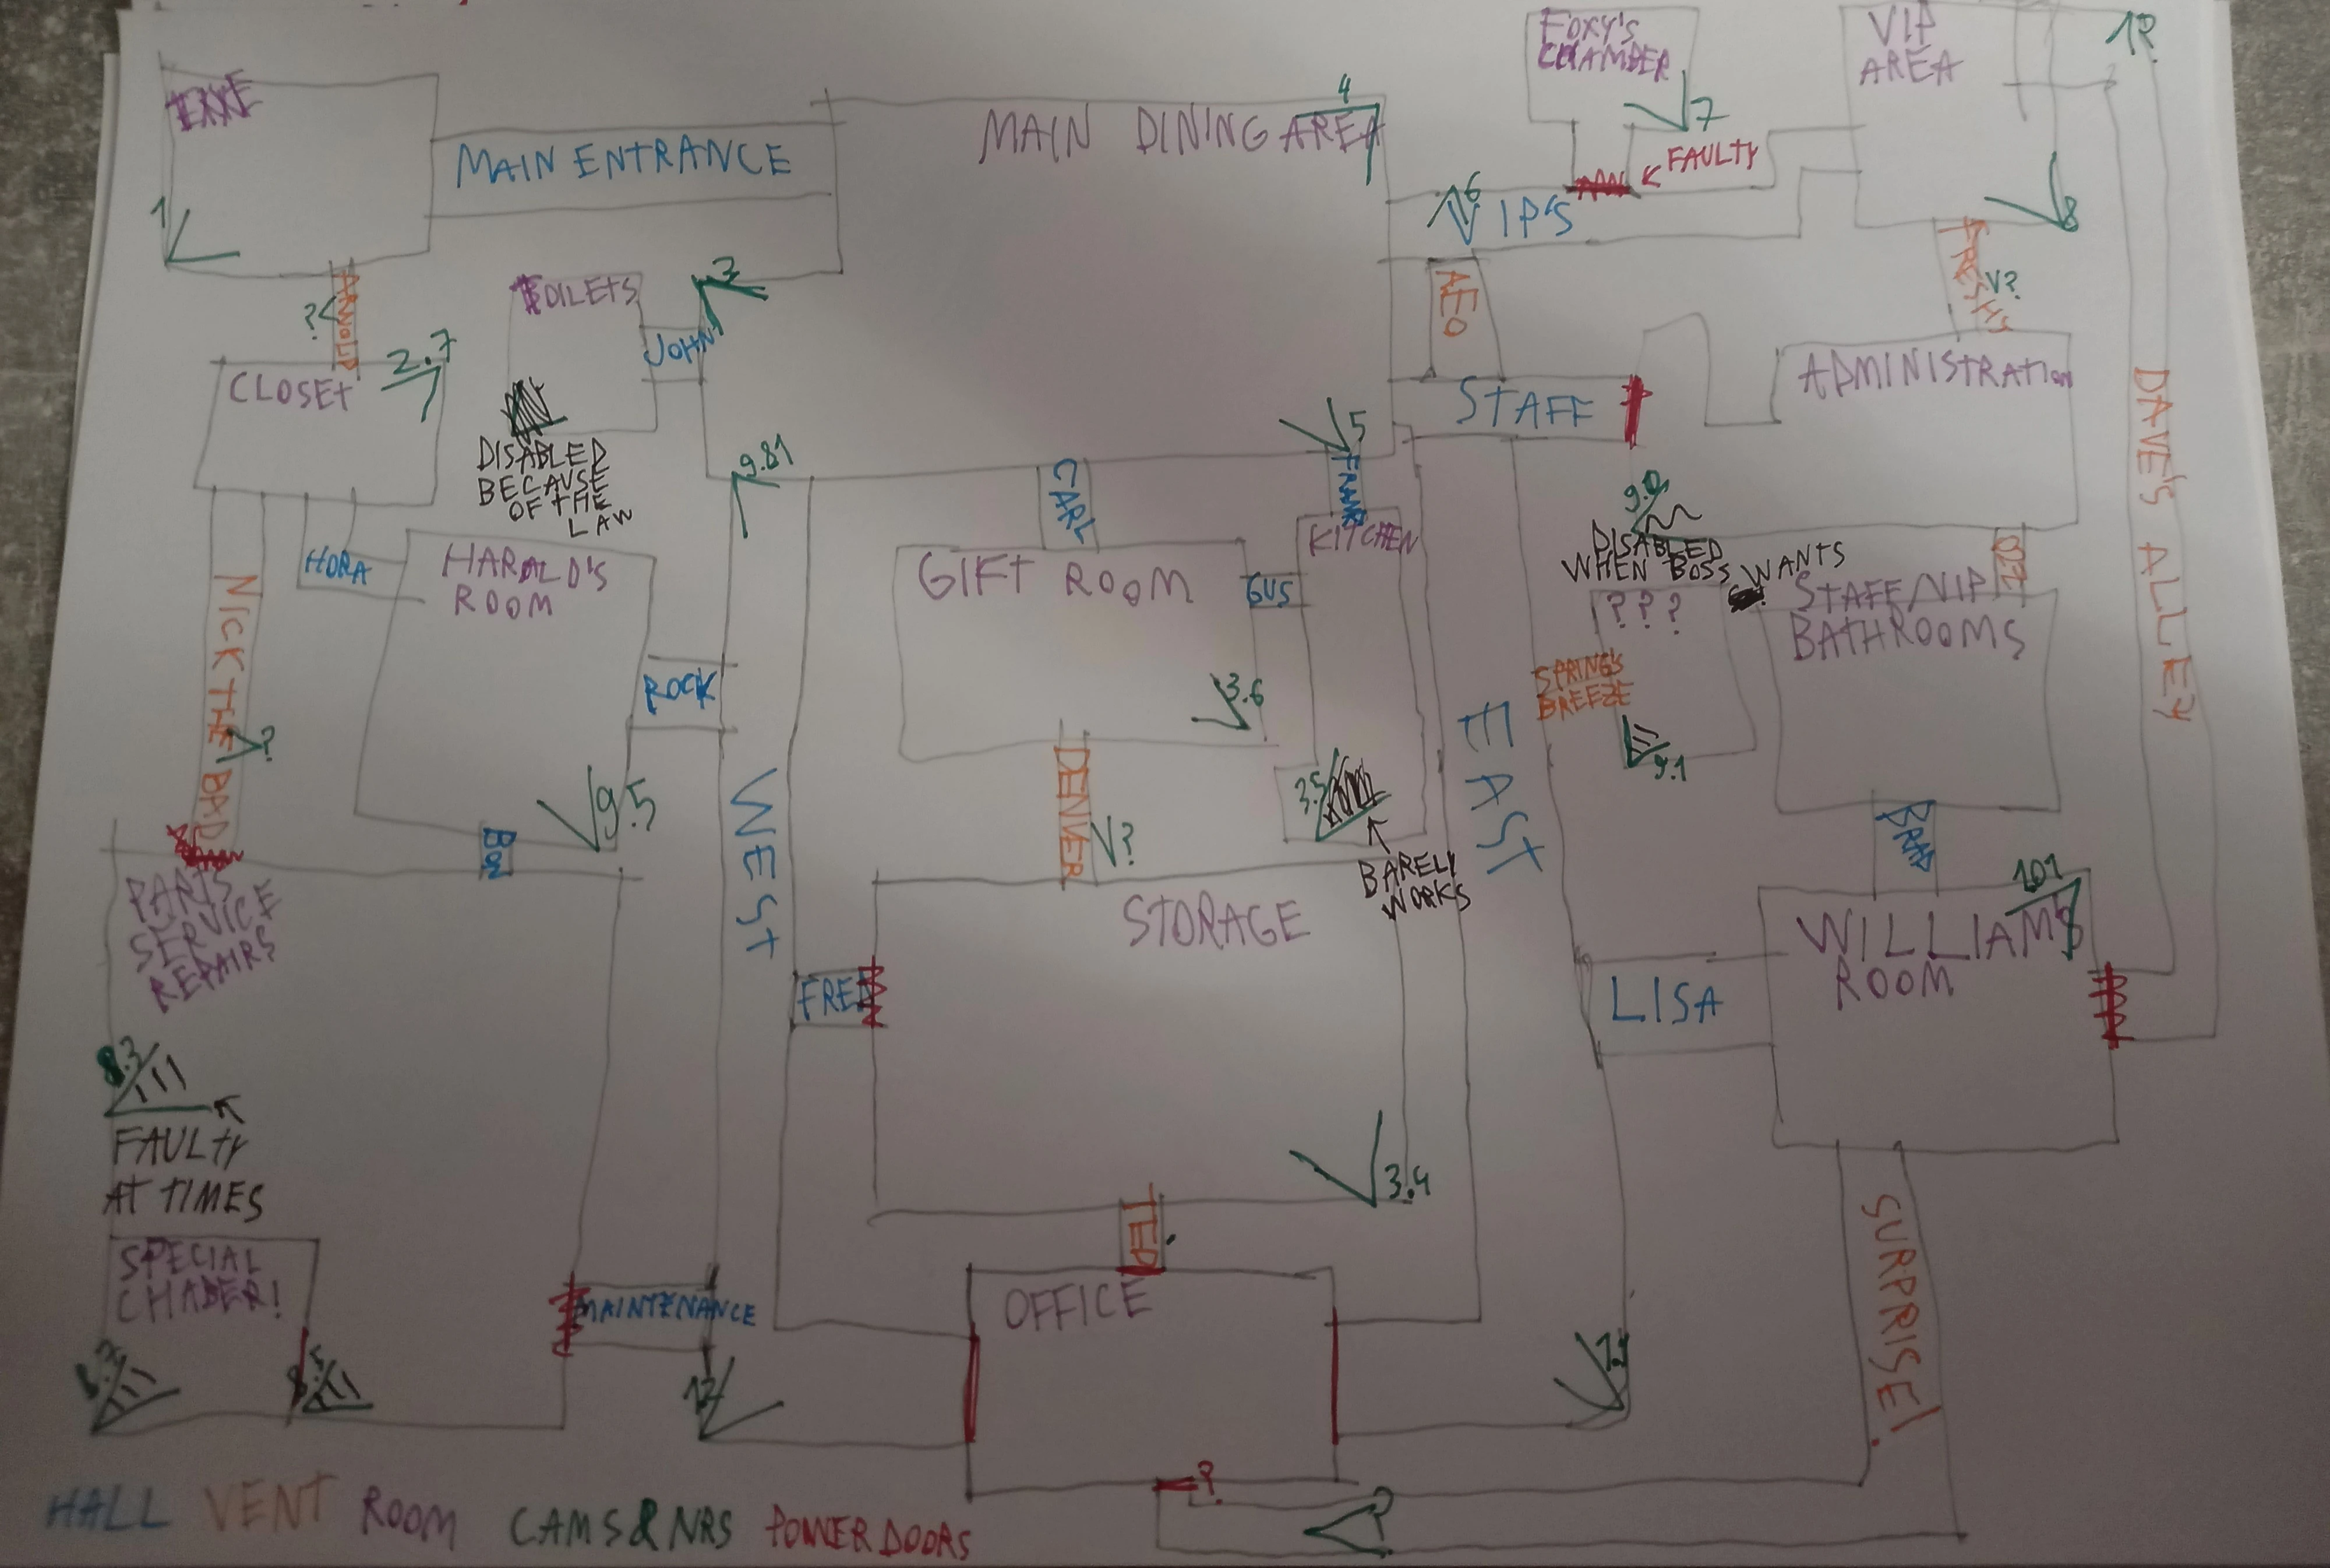 MAIN ENTRANCE
MAIN DINING AREA
4
FOXY'S
CHAMBER
7
FAULTY
VIP
AREA
1?
1
6
VIP'S
8
ARNOLD
?
TOILETS
3
JOHN
AEO
FRESHY
?
CLOSET
2.7
STAFF
ADMINISTRATION
DISABLED
BECAUSE
OF THE
LAW
9.81
CARL
5
FRANK
KITCHEN
DAVE'S ALLEY
HORA
HARALD'S
ROOM
GIFT ROOM
GUS
DISABLED
WHEN BOSS WANTS
? ? ?
OZZ
STAFF/VIP
BATHROOMS
NICK THE BAD
?
ROCK
3.6
SPRING'S
BREEZE
9.1
9.5
BON
WEST
DENVER
?
3.5
BARELY
WORKS
EAST
BRAD
101
PARTS
SERVICE
REPAIRS
STORAGE
WILLIAM'S
ROOM
FRED
LISA
8.3
FAULTY
AT TIMES
3.4
SPECIAL
CHABER!
MAINTENANCE
TED
OFFICE
SURPRISE!
12
?
?
HALL VENT ROOM CAMS&NRS POWER DOORS